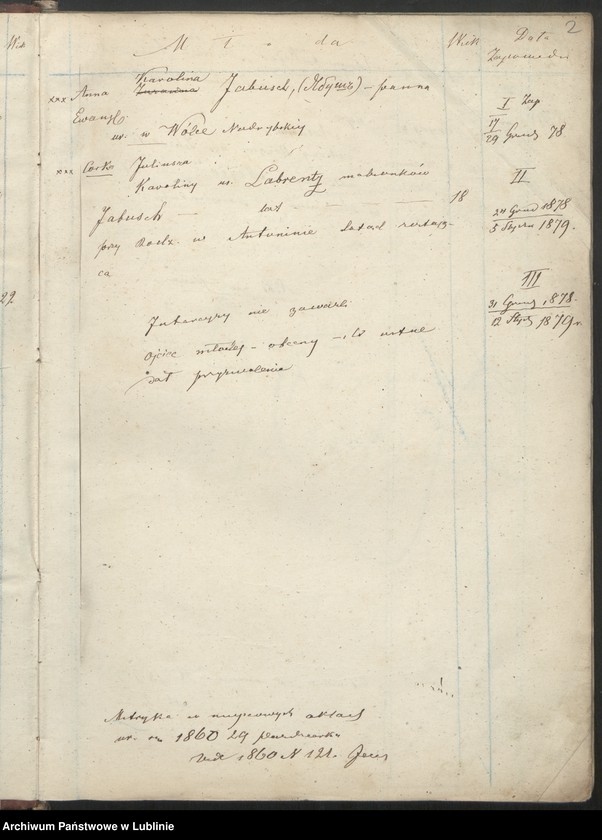 2
Wiek
Młoda
Wiek
Data
Zapowiedzi
xxx Anna Karolina Zuzanna Jabusch, (Ябушъ) - panna
Ewangl.
ur. w Wólce Nadrybskiej
I Zap
17
29 Grud. 78
xxx Córka Juliusza
Karoliny ur. Labrentz małżonków
Jabusch lat 18
przy Rodz. w Antoninie
ca
II
24 Grud 1878
5 Stycz 1879.
III
31 Grud. 1878.
12 Stycz 1879 r.
29.
Intercyzy nie zawarli
Ojciec młodej - obecny - i ustne
dał przyzwolenie
Metryka w miejscowych aktach
ur. 1860 29 Października
1860 N 121.
Archiwum Państwowe w Lublinie